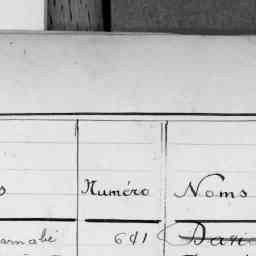 s Numéro Noms
arnabé 641